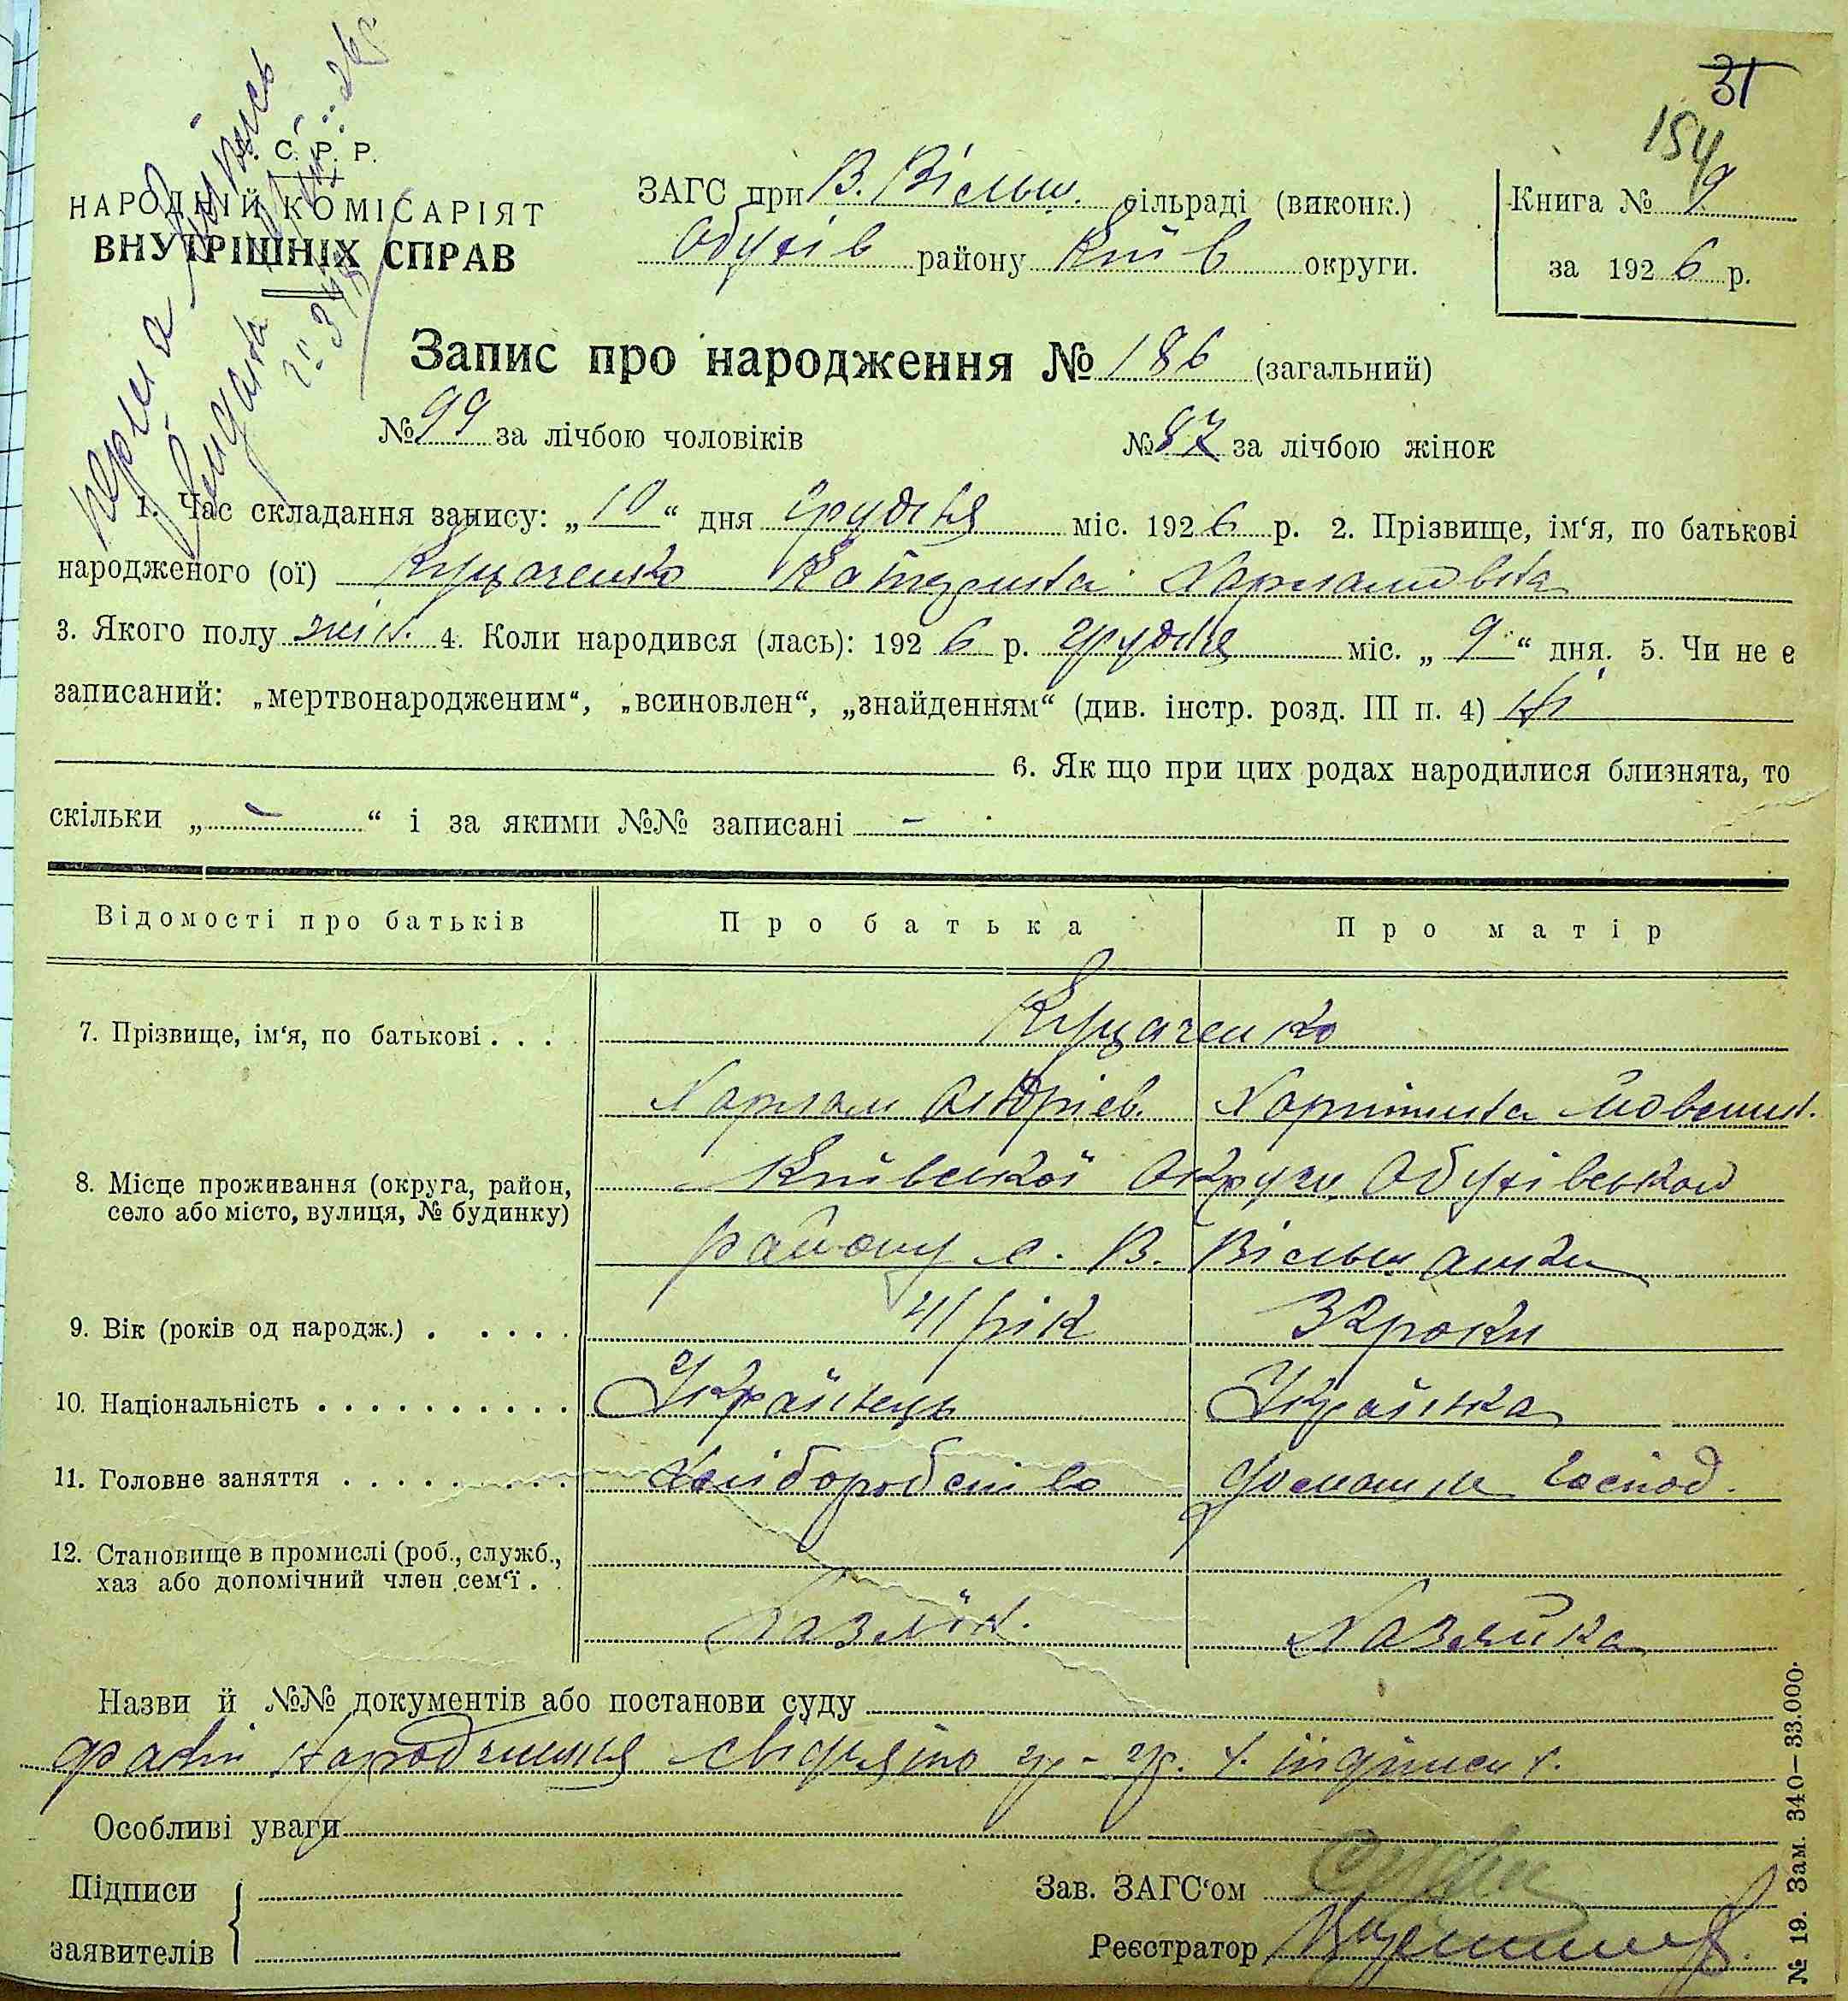 31
154
С. Р. Р.
НАРОДНІЙ КОМІСАРІЯТ
ВНУТРІШНІХ СПРАВ
ЗАГС при В. Вільш. сільраді (виконк.)
Обухів району Київ округи.
Книга № 9
за 1926 р.
Запис про народження № 186 (загальний)
№ 99 за лічбою чоловіків № 87 за лічбою жінок
1. Час складання запису: „10“ дня грудня міс. 1926 р. 2. Прізвище, ім‘я, по батькові
народженого (ої) Куцаченко Катерина Харламовна
3. Якого полу жін. 4. Коли народився (лась): 1926 р. грудня міс. „9“ дня. 5. Чи не є
записаний: „мертвонародженим“, „всиновлен“, „знайденням“ (див. інстр. розд. III п. 4) ні
6. Як що при цих родах народилися близнята, то
скільки „ - “ і за якими №№ записані -
Відомості про батьків Про батька Про матір
7. Прізвище, ім‘я, по батькові . . . Куцаченко
Харлам Андріев. Харитина
8. Місце проживання (округа, район, село або місто, вулиця, № будинку) Київської Округи Обухівськой
района с. В. Вільшанки
9. Вік (років од народж.) . . . . . 41 рік 32 роки
10. Національність . . . . . . . . . . . Українець Українка
11. Головне заняття . . . . . . . . . Хліборобство Домашн. Господ.
12. Становище в промислі (роб., служб.,
хаз або допомічний член сем‘ї . .
Хазяїн. Хазяйка
Назви й №№ документів або постанови суду
факт народження
Особливі уваги
Підписи
заявителів
Зав. ЗАГС‘ом
Реєстратор
№ 19. Зам. 340—33.000.